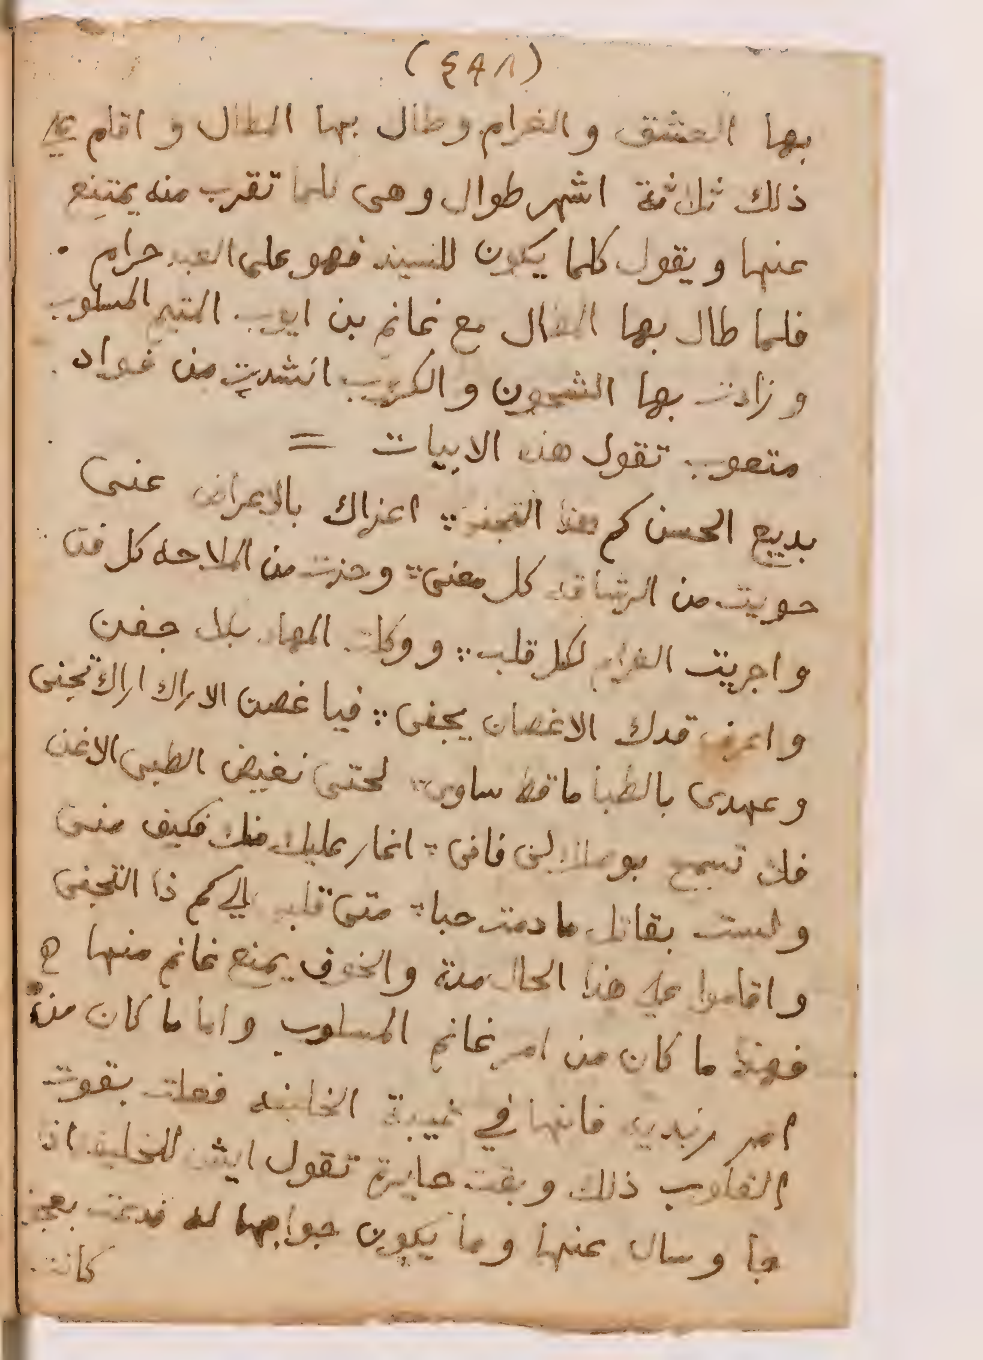 (٤٩٨)
بها العشق و الغرام وطال بها المطال و اقام على
ذلك ثلاثة اشهر طوال وهى كلما تقرب منه يمتنع
عنها و يقول كلما يكون للسيد فهو على العبد حرام .
فلما طال بها المطال مع غانم بن ايوب المتيم المسلوب
و زادت بها الشجون و الكروب انشدت من فواد
متعوب تقول هذه الابيات =
بديع الحسن كم هذا التجنى :: اغراك بالاعراض عنى
حويت من الرشاقه كل معنى :: و حزت من الملاحه كل فن
و اجريت الغرام لكل قلب :: و وكلت المهاد بكل جفن
و اعرف قدك الاغصان يجفى :: فيا غصن الاراك اراك تجنى
و عهدى بالظبا ما قط ساوى :: لحتى نغيض الظبى الاغن
بوصلك :: اغار عليك منك فكيف منى
و لست بقاتل ما دمت حبا :: متى قلبى كم ذا التجفى
و اقاموا على هذا الحال مدة و الخوف يمنع غانم منها
فهذا ما كان من امر غانم المسلوب و اما ما كان من
امر زبيده فانها في غيبة الخليفه فعلت بقوت
القلوب ذلك و بقت حايرة تقول ايش للخليفه اذا
جا و سال عنها و ما يكون جوابها له فدعت بعجوز
كانت